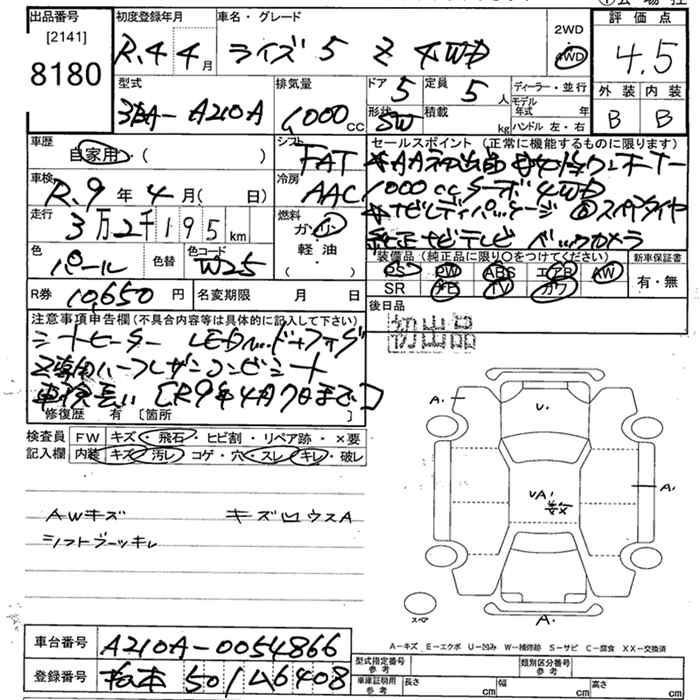 出品番号
[2141]
8180
初度登録年月
R.4 4月
車名・グレード
ライズ 5 Z 4WD
2WD
4WD
評価点
4.5
外装 内装
B B
型式
3BA-A210A
排気量
1000 cc
ドア 5
定員 5 人
形状 SW
積載 kg
ディーラー・並行
モデル年式 年
ハンドル 左・右
車歴
自家用・( )
シフト
FAT
セールスポイント (正常に機能するものに限ります)
1000cc ターボ 4WD
純正ナビテレビ バックカメラ
車検
R.9 年 4 月( 日)
冷房
AAC
走行
3万2千195 km
燃料
ガソリン
軽油
( )
色
パール
色替
色コード
W25
装備品 (純正品に限り○をつけてください)
PS PW ABS エアB AW
SR ナビ TV カワ
新車保証書
有・無
R券 10,650 円
名変期限 月 日
後日品
初出品
注意事項申告欄 (不具合内容等は具体的に記入して下さい)
シートヒーター LEDヘッド+フォグ
Z専用ハーフレザーコンビシート
車検長い [R9年4月7日まで]
修復歴 有 [箇所 ]
検査員記入欄
FW キズ・飛石・ヒビ割・リペア跡・×要
内装 キズ・汚レ・コゲ・穴・スレ・キレ・破レ
AWキズ キズ凹ウスA
シフトブーツキレ
A.
U.
UA
A.
A.
スペア
A-キズ E-エクボ U-凹み W-補修跡 S-サビ C-腐食 XX-交換済
車台番号 A210A-0054866
登録番号 松本 501 ム 6408
型式指定番号 参考
類別区分番号 参考
車庫証明用 参考
長さ cm 幅 cm 高さ cm